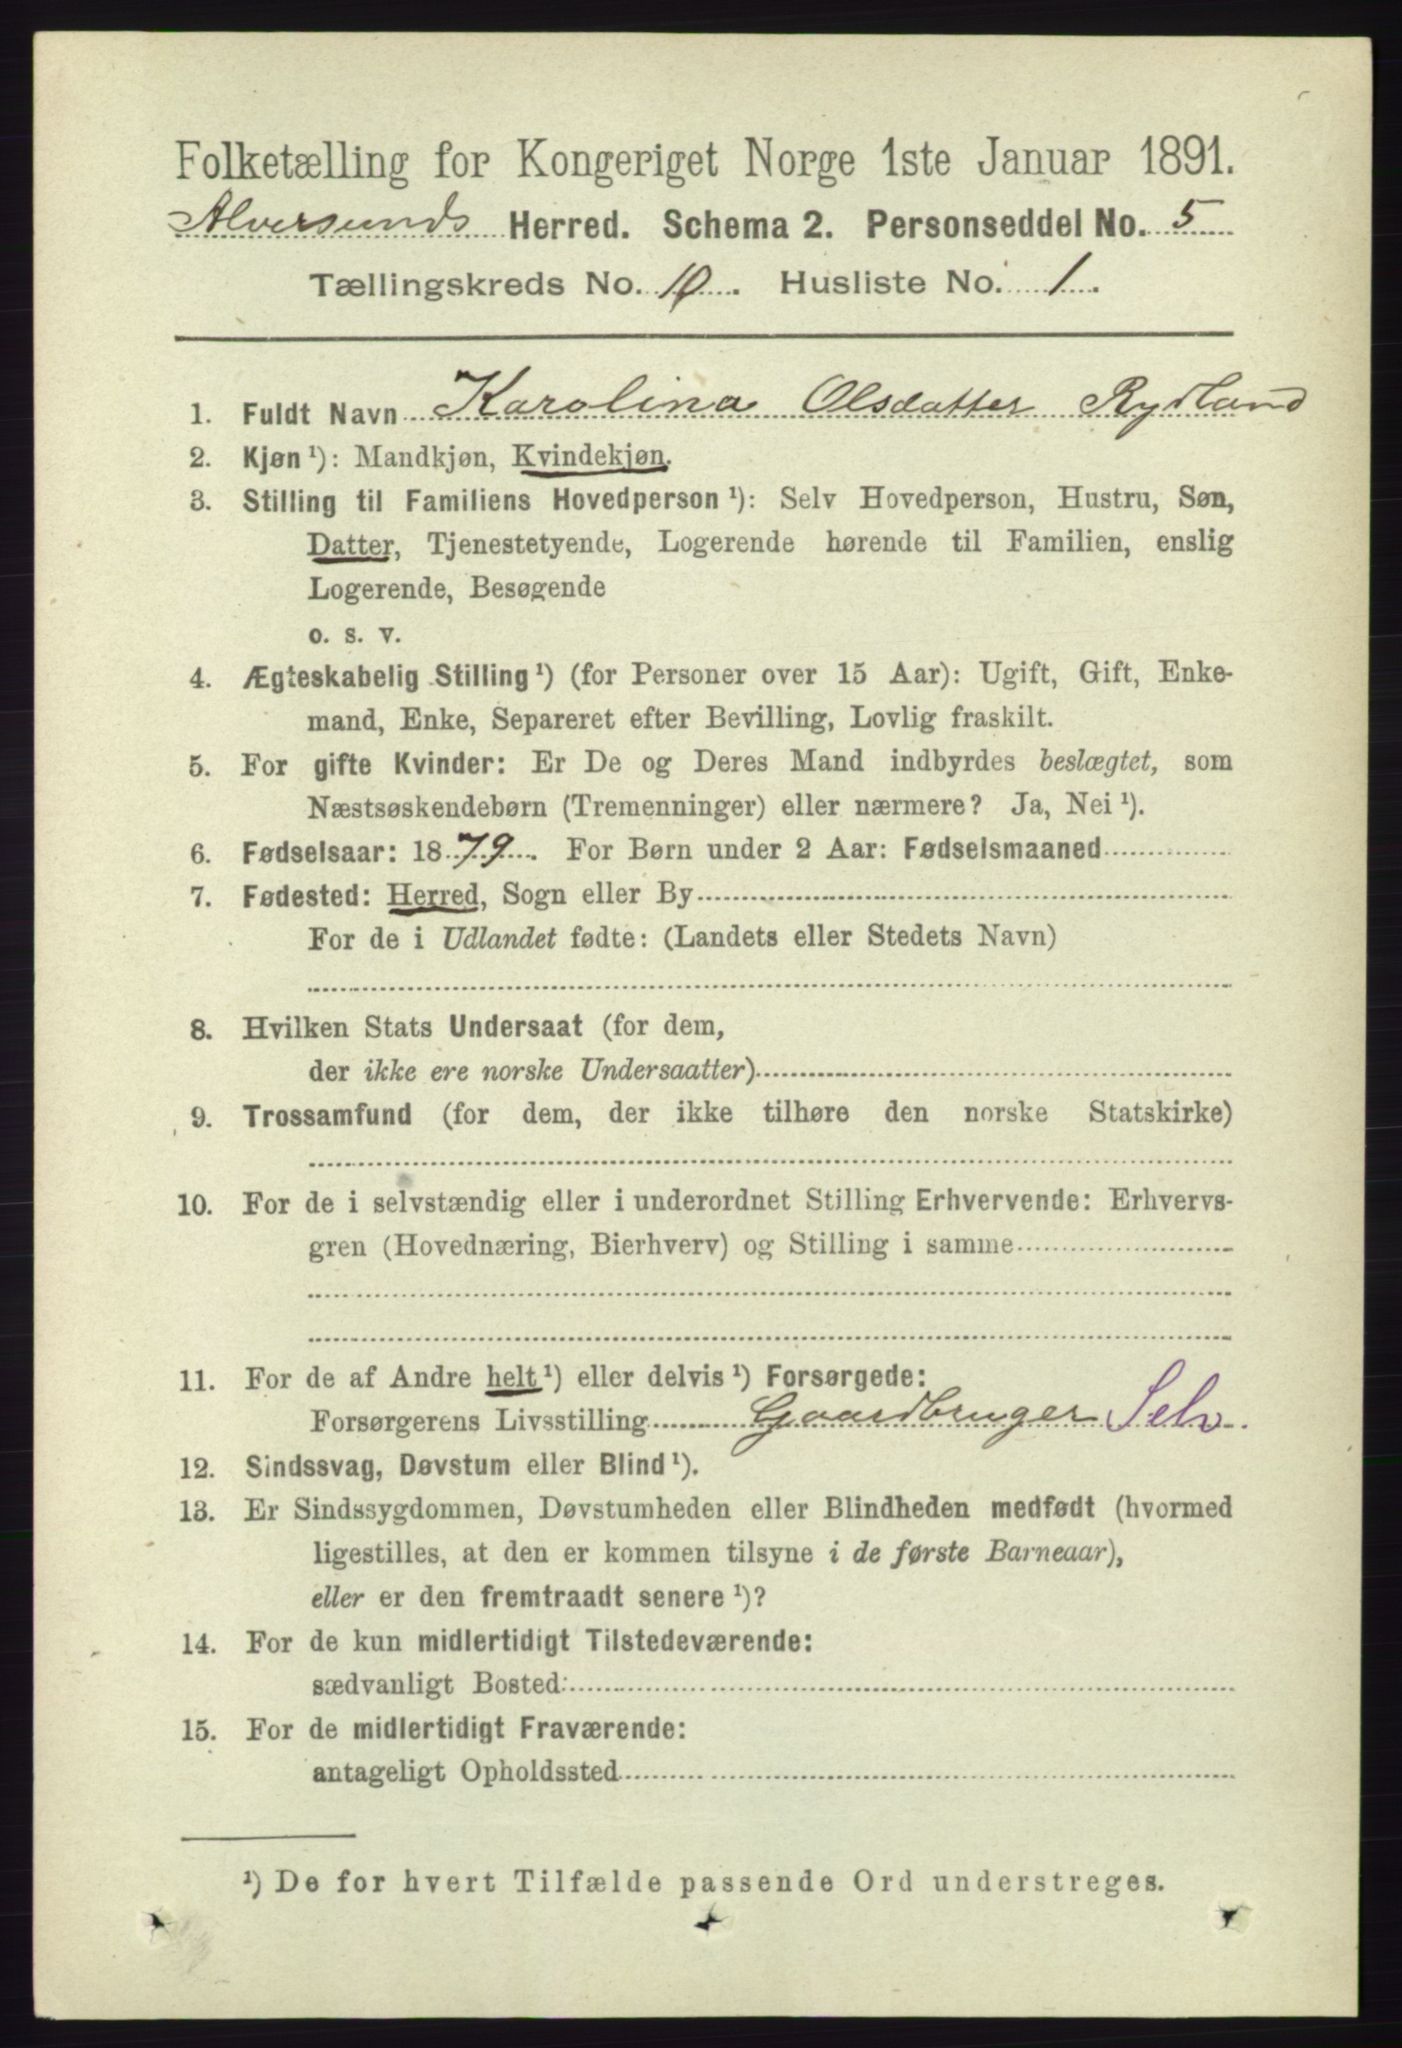 Folketælling for Kongeriget Norge 1ste Januar 1891.
Alversunds Herred. Schema 2. Personseddel No. 5
Tællingskreds No. 10. Husliste No. 1.
1. Fuldt Navn Karolina Olsdatter Rydland
2. Kjøn ¹): Mandkjøn, Kvindekjøn.
3. Stilling til Familiens Hovedperson ¹): Selv Hovedperson, Hustru, Søn,
Datter, Tjenestetyende, Logerende hørende til Familien, enslig
Logerende, Besøgende
o. s. v.
4. Ægteskabelig Stilling ¹) (for Personer over 15 Aar): Ugift, Gift, Enke-
mand, Enke, Separeret efter Bevilling, Lovlig fraskilt.
5. For gifte Kvinder: Er De og Deres Mand indbyrdes beslægtet, som
Næstsøskendebørn (Tremenninger) eller nærmere? Ja, Nei ¹).
6. Fødselsaar: 1879. For Børn under 2 Aar: Fødselsmaaned
7. Fødested: Herred, Sogn eller By
For de i Udlandet fødte: (Landets eller Stedets Navn)
8. Hvilken Stats Undersaat (for dem,
der ikke ere norske Undersaatter)
9. Trossamfund (for dem, der ikke tilhøre den norske Statskirke)
10. For de i selvstændig eller i underordnet Stilling Erhvervende: Erhvervs-
gren (Hovednæring, Bierhverv) og Stilling i samme
11. For de af Andre helt ¹) eller delvis ¹) Forsørgede:
Forsørgerens Livsstilling Gaardbruger Selv.
12. Sindssvag, Døvstum eller Blind ¹).
13. Er Sindssygdommen, Døvstumheden eller Blindheden medfødt (hvormed
ligestilles, at den er kommen tilsyne i de første Barneaar),
eller er den fremtraadt senere ¹)?
14. For de kun midlertidigt Tilstedeværende:
sædvanligt Bosted:
15. For de midlertidigt Fraværende:
antageligt Opholdssted
¹) De for hvert Tilfælde passende Ord understreges.